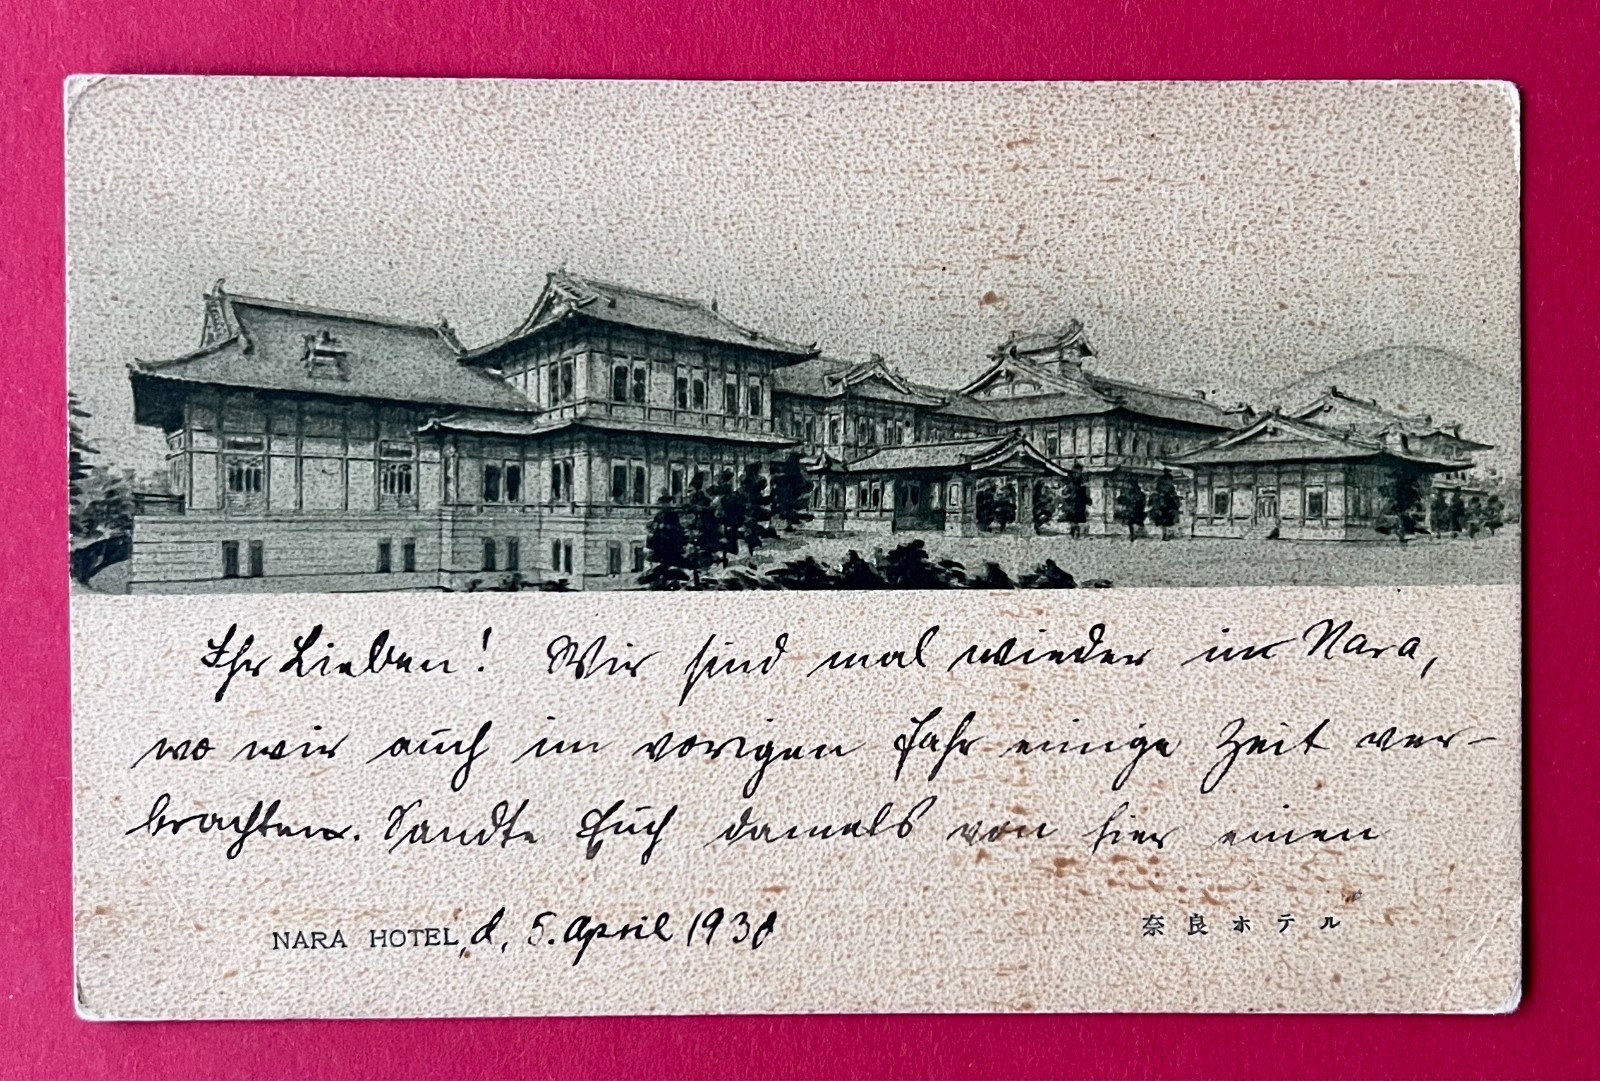 Ihr Lieben! Wir sind mal wieder in Nara,
wo wir auch im vorigen Jahr einige Zeit ver-
brachten. Sandte Euch damals von hier einen
NARA HOTEL, d. 5. April 1931
奈良ホテル